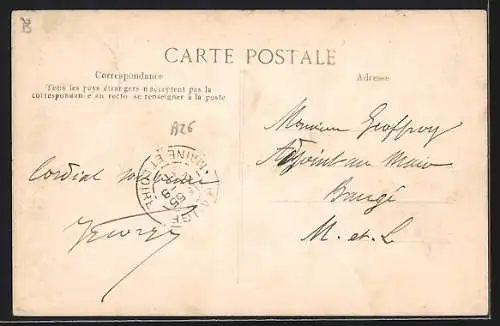 CARTE POSTALE
Correspondance
Tous les pays étrangers n'acceptent pas la
correspondance au recto se renseigner à la poste
Adresse
A26
Cordial souvenir
Monsieur Geoffroy
Adjoint au Maire
Baugé
M. et L.
BAUGÉ
MAINE ET LOIRE